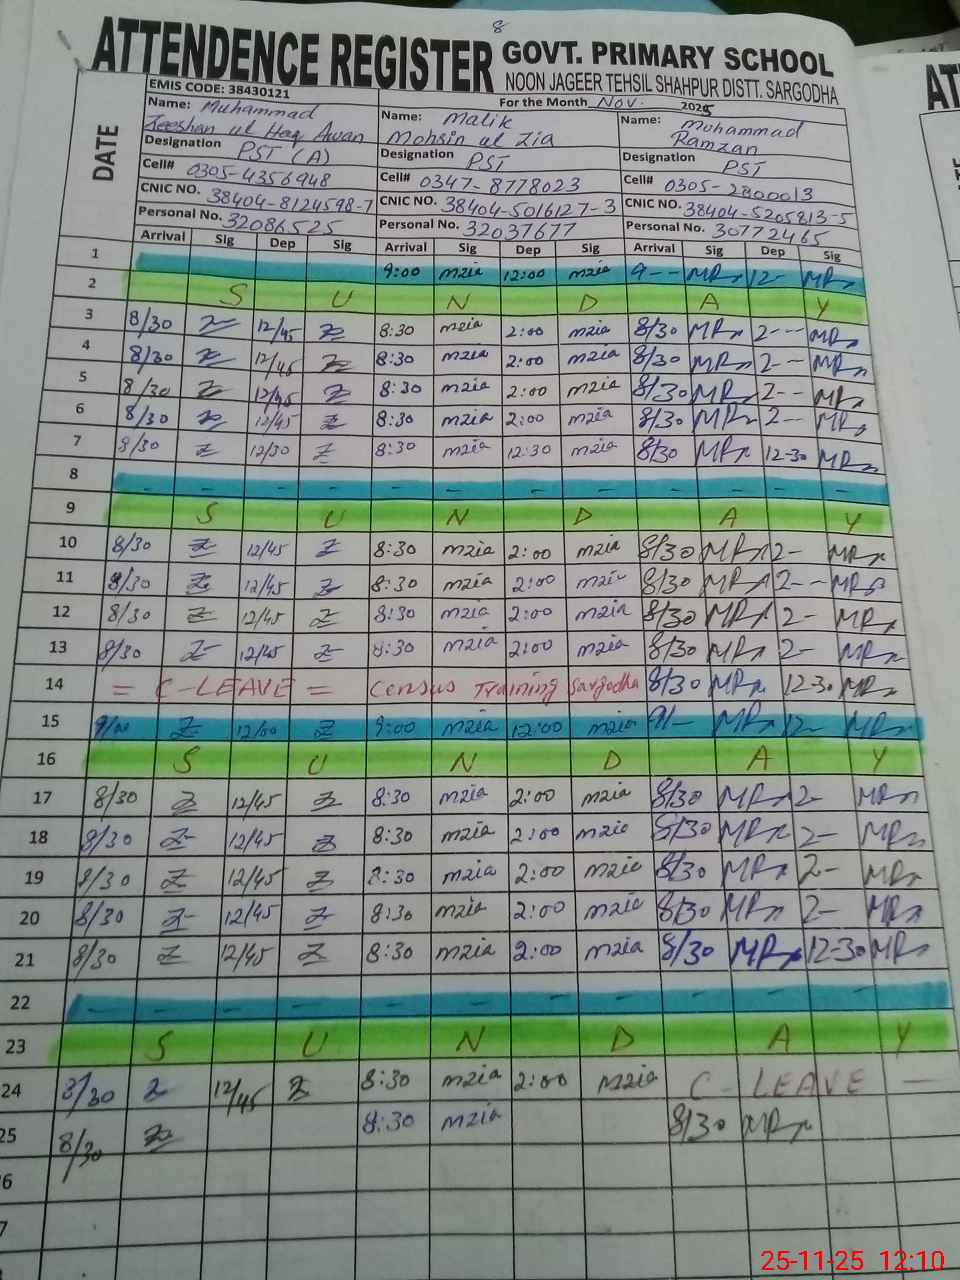 8
ATTENDENCE REGISTER GOVT. PRIMARY SCHOOL
NOON JAGEER TEHSIL SHAHPUR DISTT. SARGODHA
EMIS CODE: 38430121 For the Month Nov. 2025
DATE
Name: Muhammad Zeeshan ul Haq Awan
Designation PST (A)
Cell# 0305-4356948
CNIC NO. 38404-8124598-7
Personal No. 32086525
Name: Malik Mohsin ul Zia
Designation PST
Cell# 0347-8778023
CNIC NO. 38404-5016127-3
Personal No. 32037677
Name: Mohammad Ramzan
Designation PST
Cell# 0305-2800013
CNIC NO. 38404-5205813-5
Personal No. 30772465
Arrival Sig Dep Sig Arrival Sig Dep Sig Arrival Sig Dep Sig
1 9:00 mzia 12:00 mzia 9-- MR 12- MR
2 S U N D A Y
3 8/30 Z 12/45 Z 8:30 mzia 2:00 mzia 8/30 MR 2-- MR
4 8/30 Z 12/45 Z 8:30 mzia 2:00 mzia 8/30 MR 2-- MR
5 8/30 Z 12/45 Z 8:30 mzia 2:00 mzia 8/30 MR 2-- MR
6 8/30 Z 12/45 Z 8:30 mzia 2:00 mzia 8/30 MR 2-- MR
7 8/30 Z 12/30 Z 8:30 mzia 12:30 mzia 8/30 MR 12-30 MR
8 - - - - - - - - - - - -
9 S U N D A Y
10 8/30 Z 12/45 Z 8:30 mzia 2:00 mzia 8/30 MR 2- MR
11 8/30 Z 12/45 Z 8:30 mzia 2:00 mzia 8/30 MR 2-- MR
12 8/30 Z 12/45 Z 8:30 mzia 2:00 mzia 8/30 MR 2- MR
13 8/30 Z 12/45 Z 8:30 mzia 2:00 mzia 8/30 MR 2- MR
14 = C-LEAVE = Census Training Sargodha 8/30 MR 12-30 MR
15 9/00 Z 12/00 Z 9:00 mzia 12:00 mzia 9/- MR 12- MR
16 S U N D A Y
17 8/30 Z 12/45 Z 8:30 mzia 2:00 mzia 8/30 MR 2- MR
18 8/30 Z 12/45 Z 8:30 mzia 2:00 mzia 8/30 MR 2- MR
19 8/30 Z 12/45 Z 8:30 mzia 2:00 mzia 8/30 MR 2- MR
20 8/30 Z 12/45 Z 8:30 mzia 2:00 mzia 8/30 MR 2- MR
21 8/30 Z 12/45 Z 8:30 mzia 2:00 mzia 8/30 MR 12-30 MR
22 - - - - - - - - - - -
23 S U N D A Y
24 8/30 Z 12/45 Z 8:30 mzia 2:00 mzia C-LEAVE -
25 8/30 Z 8:30 mzia 8/30 MR
6
7
8
AT
25-11-25 12:10